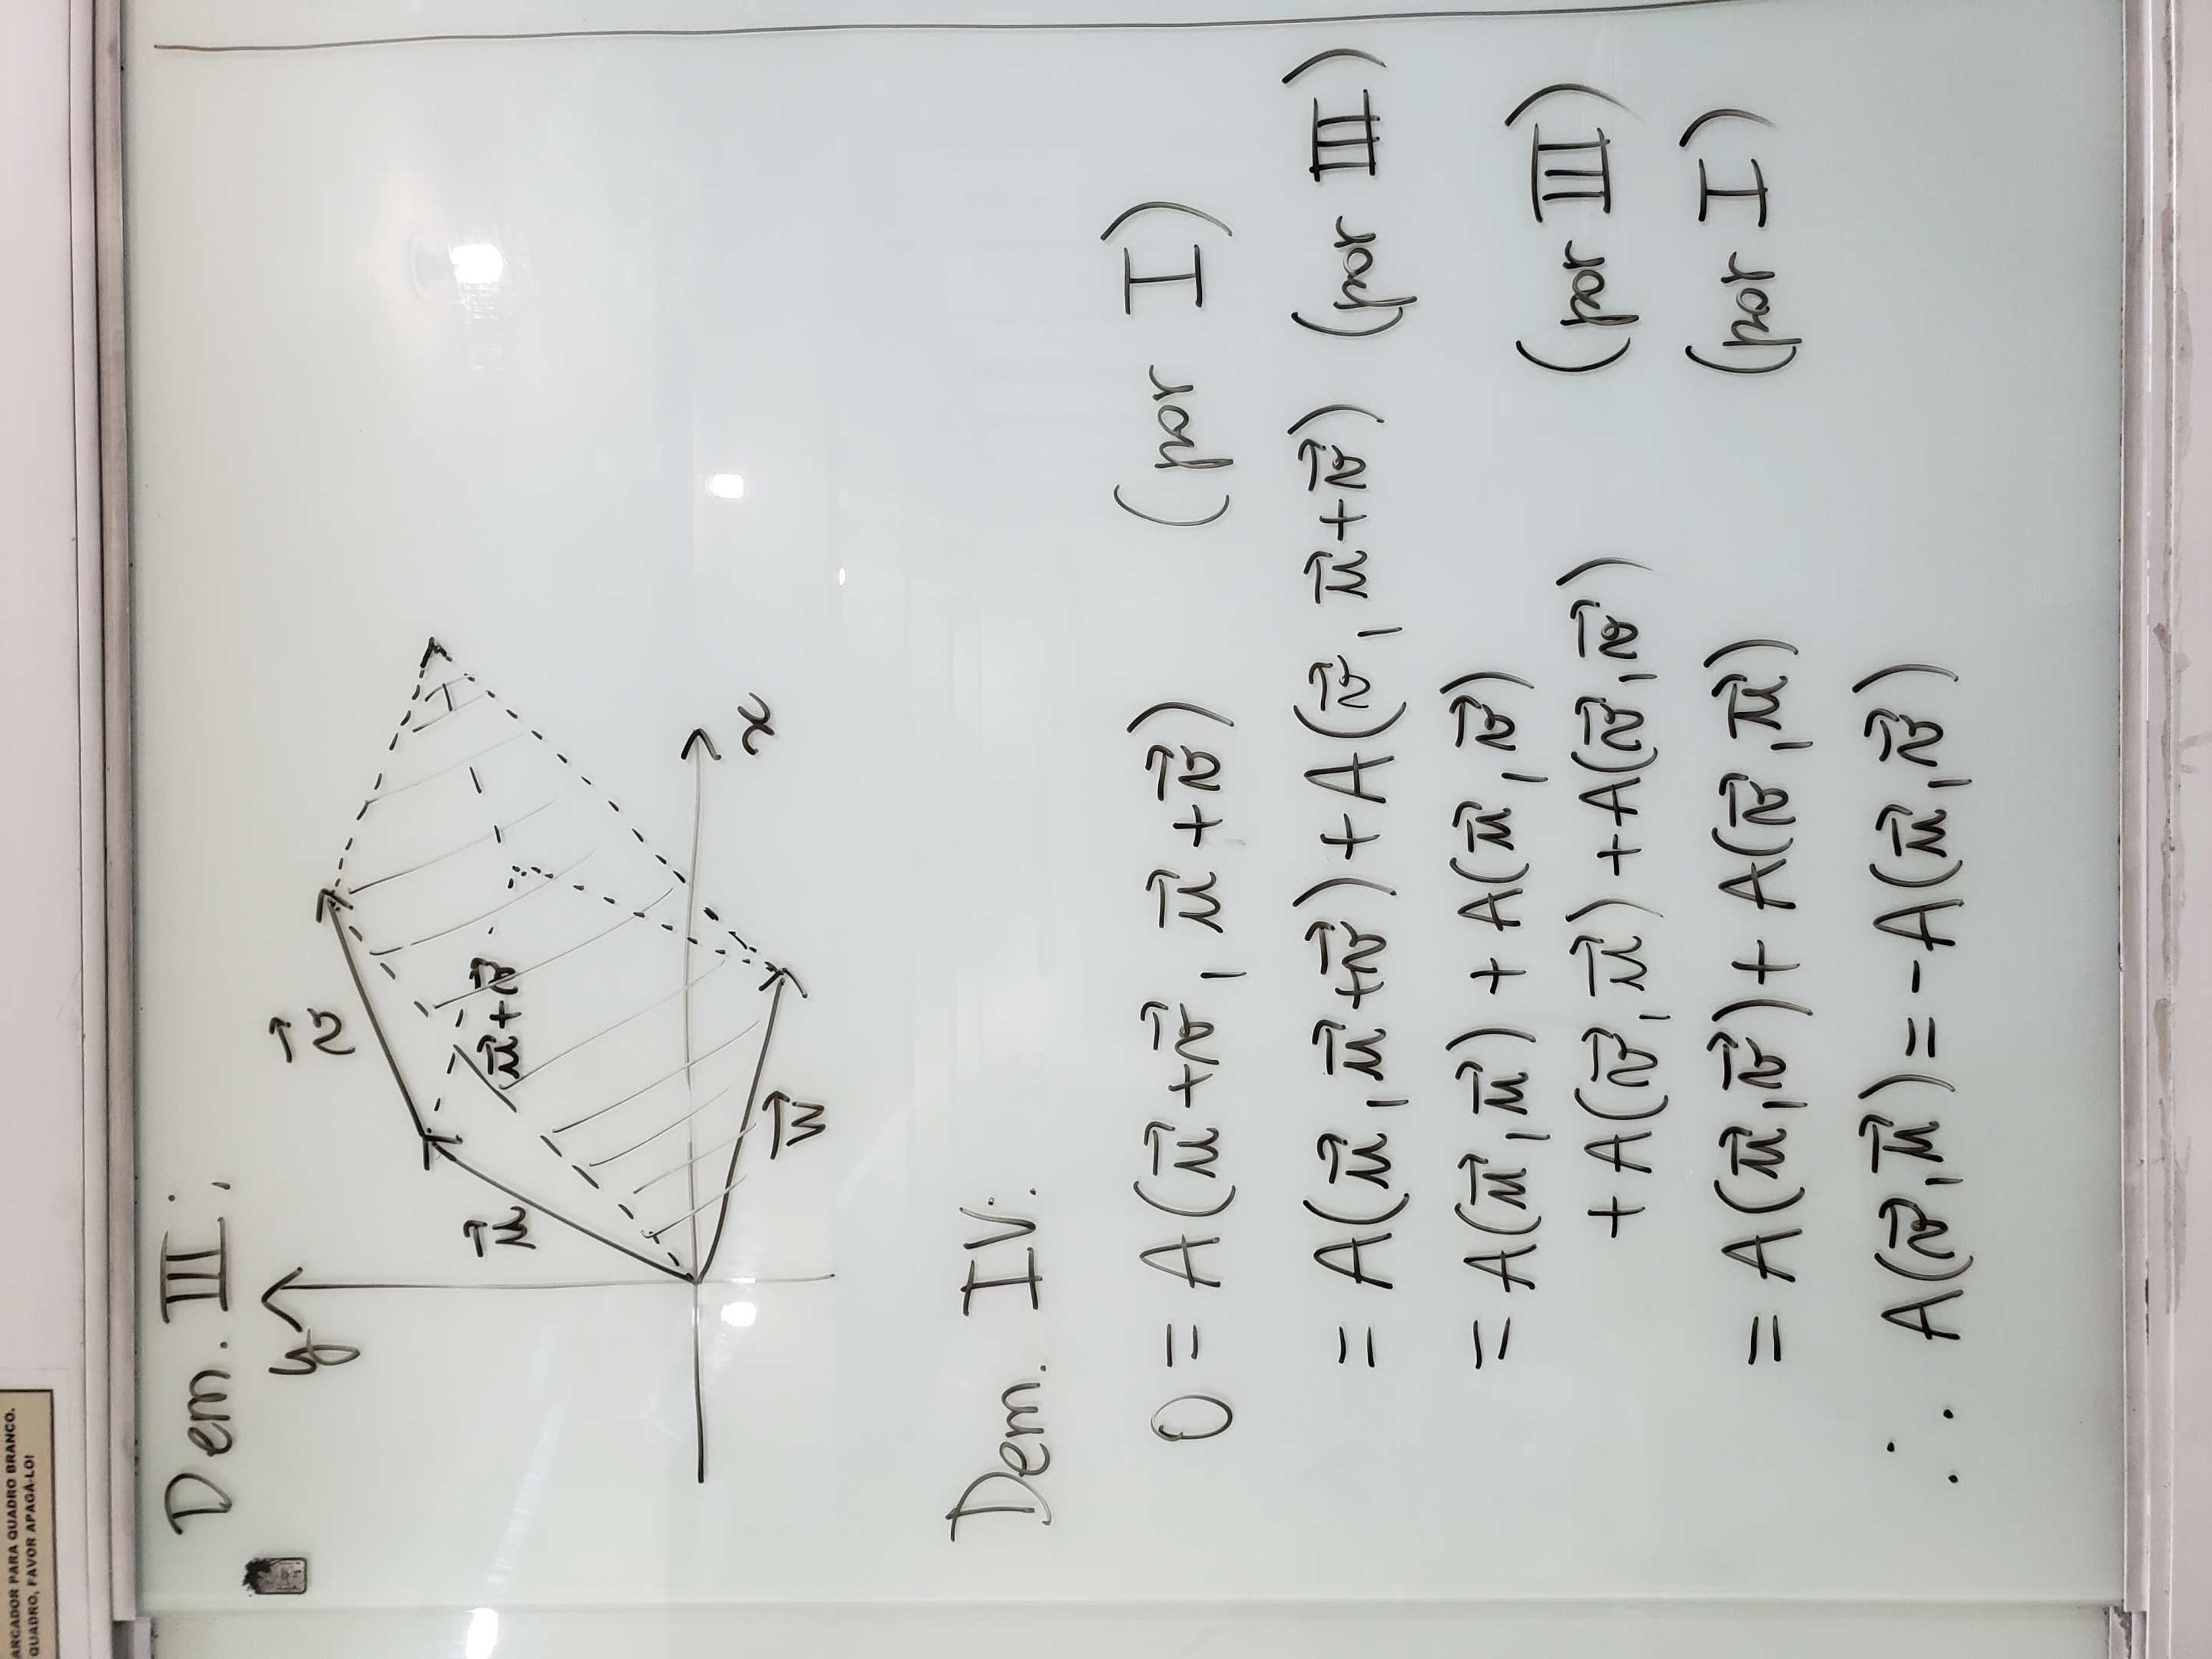 ARCADOR PARA QUADRO BRANCO.
QUADRO, FAVOR APAGÁ-LO!
Dem. III:
y
v⃗
u⃗
u⃗+v⃗
x
w⃗
Dem. IV:
0 = A(u⃗+v⃗, u⃗+v⃗) (por I)
= A(u⃗, u⃗+v⃗)+A(v⃗, u⃗+v⃗) (por III)
= A(u⃗, u⃗) + A(u⃗, v⃗)
+ A(v⃗, u⃗) + A(v⃗, v⃗) (por III)
= A(u⃗, v⃗) + A(v⃗, u⃗) (por I)
∴ A(v⃗, u⃗) = -A(u⃗, v⃗)